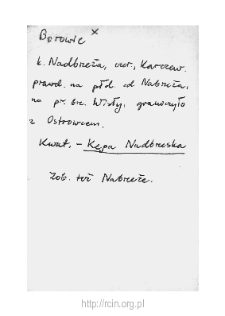 Borowie x
k. Nadbrzeża, czer., Karczew.
prawd. na płd. od Nabrzeża,
na pr. brz. Wisły, graniczyło
z Ostrowcem.
Kwat. – Kępa Nadbrzeska
Zob. też Nabrzeże.
http://rcin.org.pl